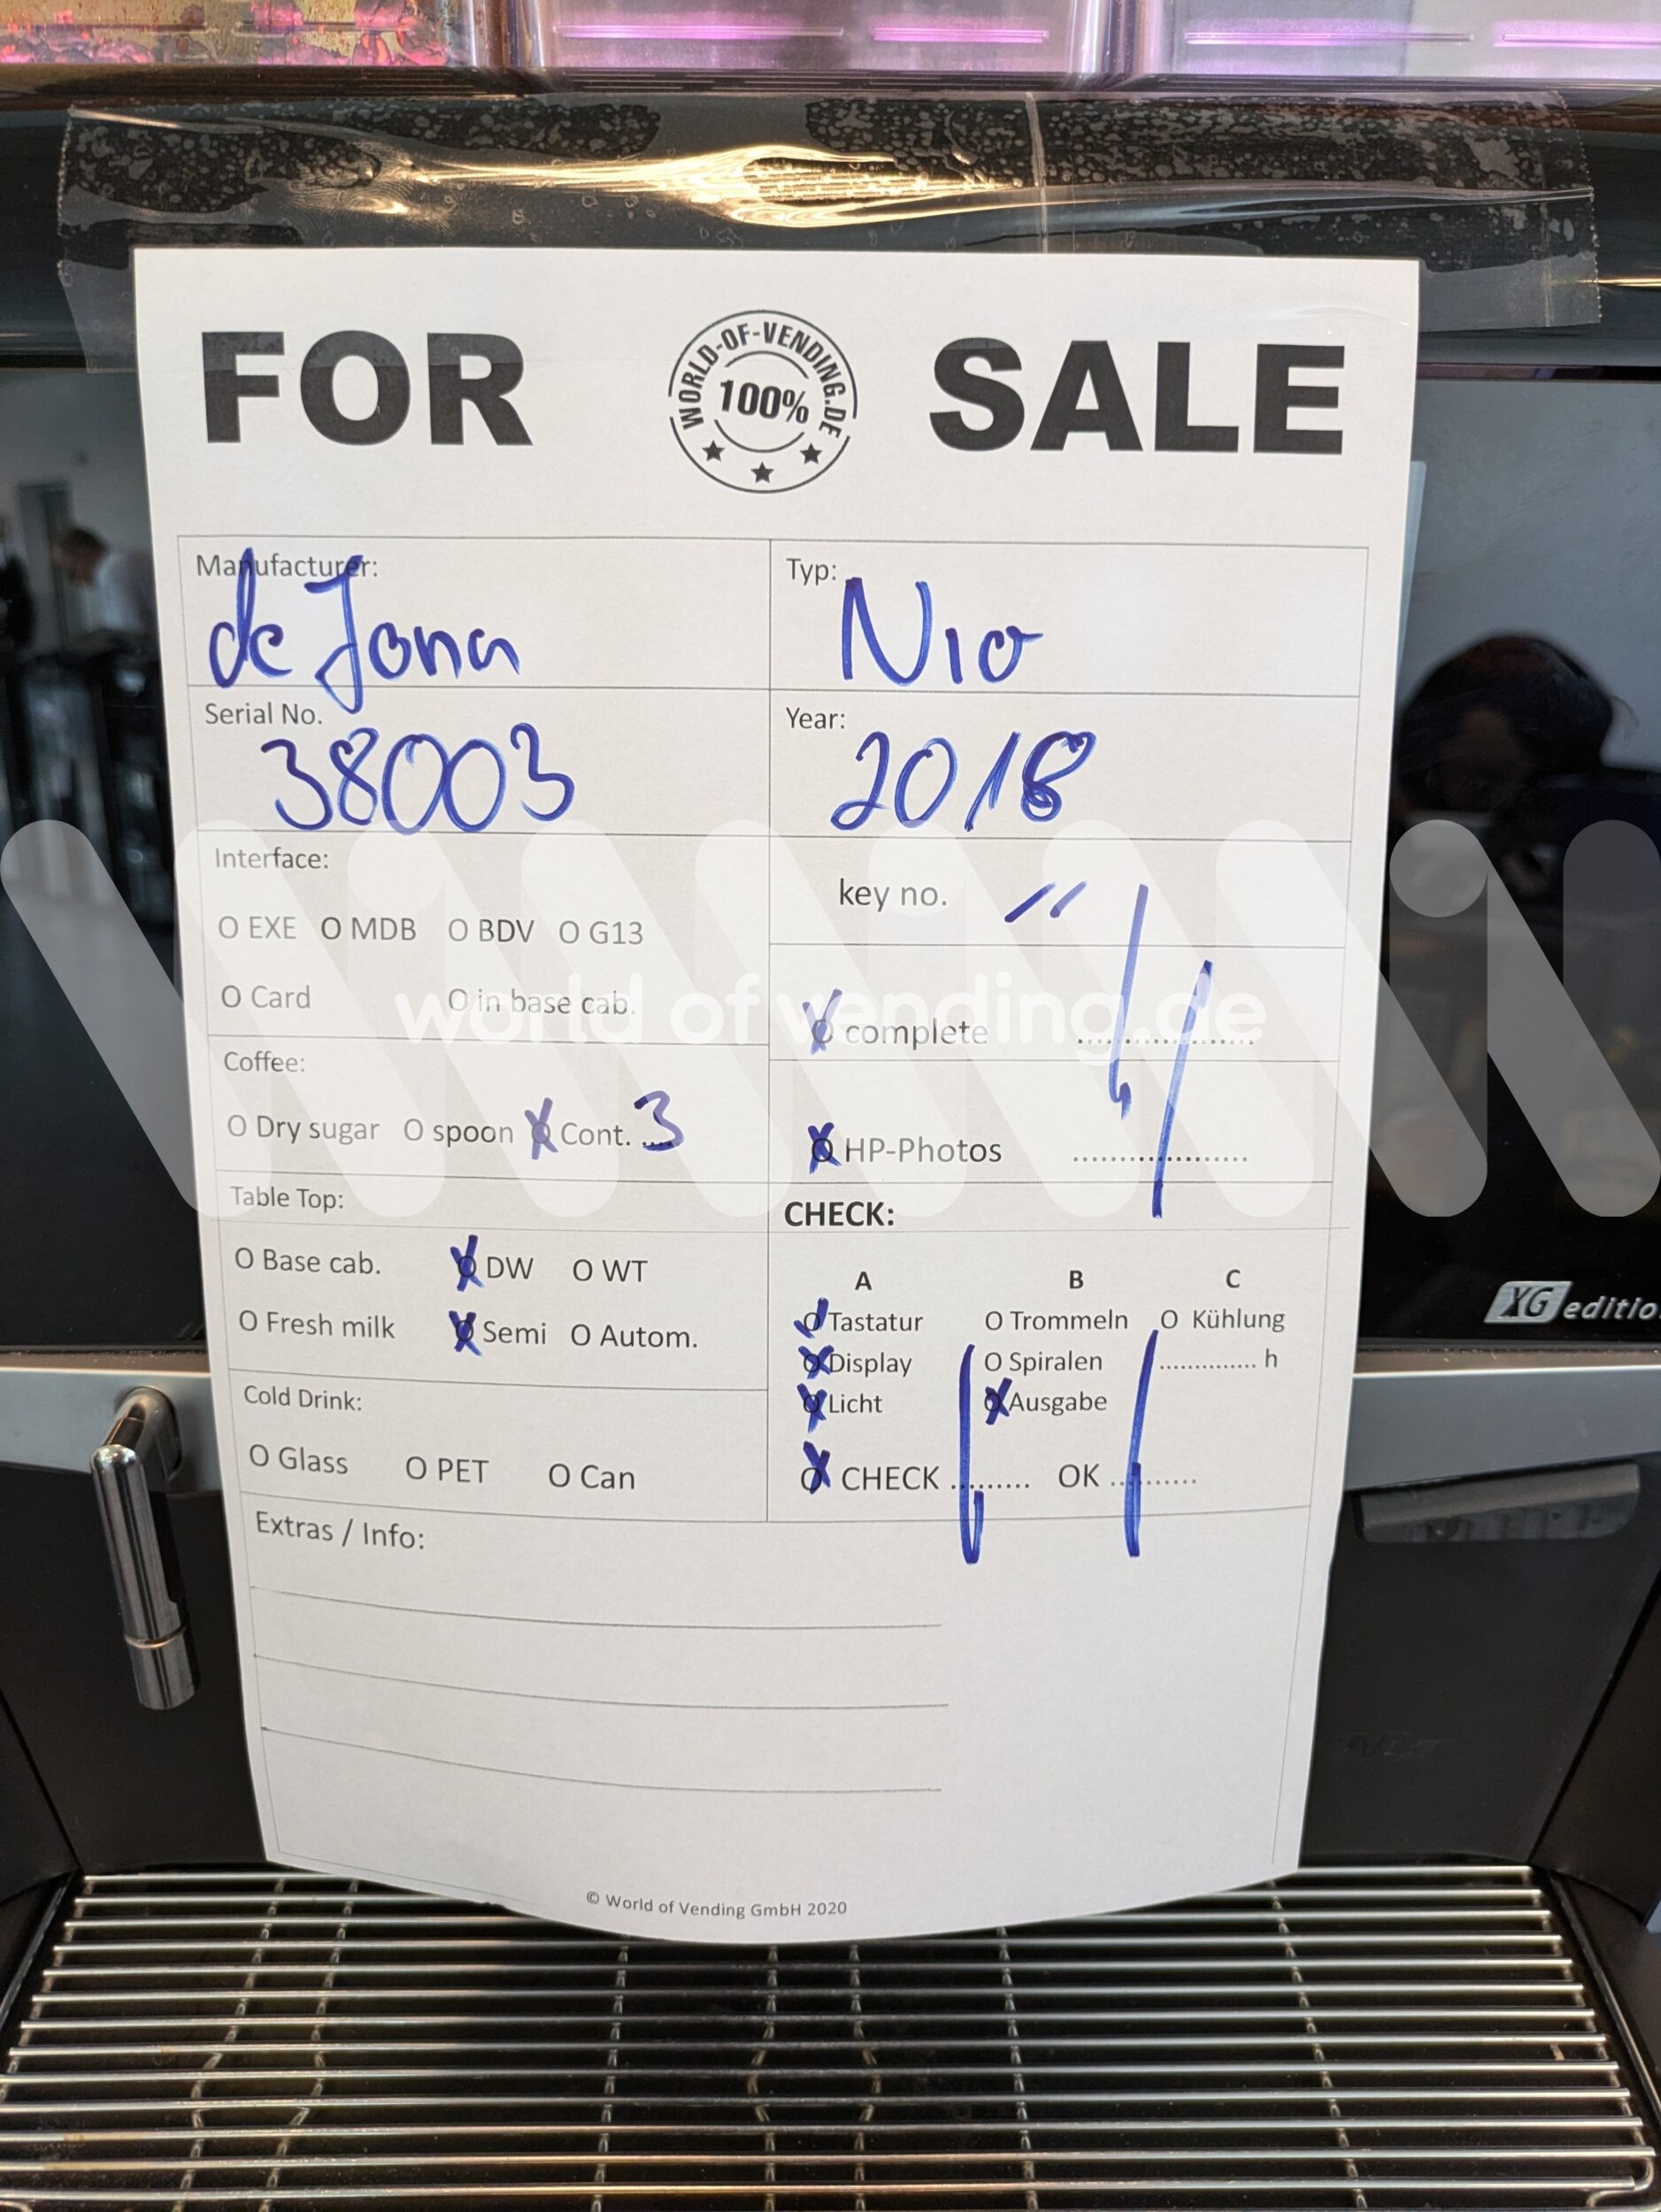 FOR SALE
WORLD-OF-VENDING.DE
100%
Manufacturer:
de Jona
Typ:
Nio
Serial No.
38003
Year:
2018
Interface:
O EXE O MDB O BDV O G13
O Card O in base cab.
key no. //
complete ....................
HP-Photos ....................
world of vending.de
Coffee:
O Dry sugar O spoon X Cont. ....3
Table Top:
O Base cab. X DW O WT
O Fresh milk X Semi O Autom.
Cold Drink:
O Glass O PET O Can
CHECK:
A B C
Tastatur O Trommeln O Kühlung
Display O Spiralen ............. h
Licht X Ausgabe
CHECK ......... OK ..........
Extras / Info:
© World of Vending GmbH 2020
XG editio